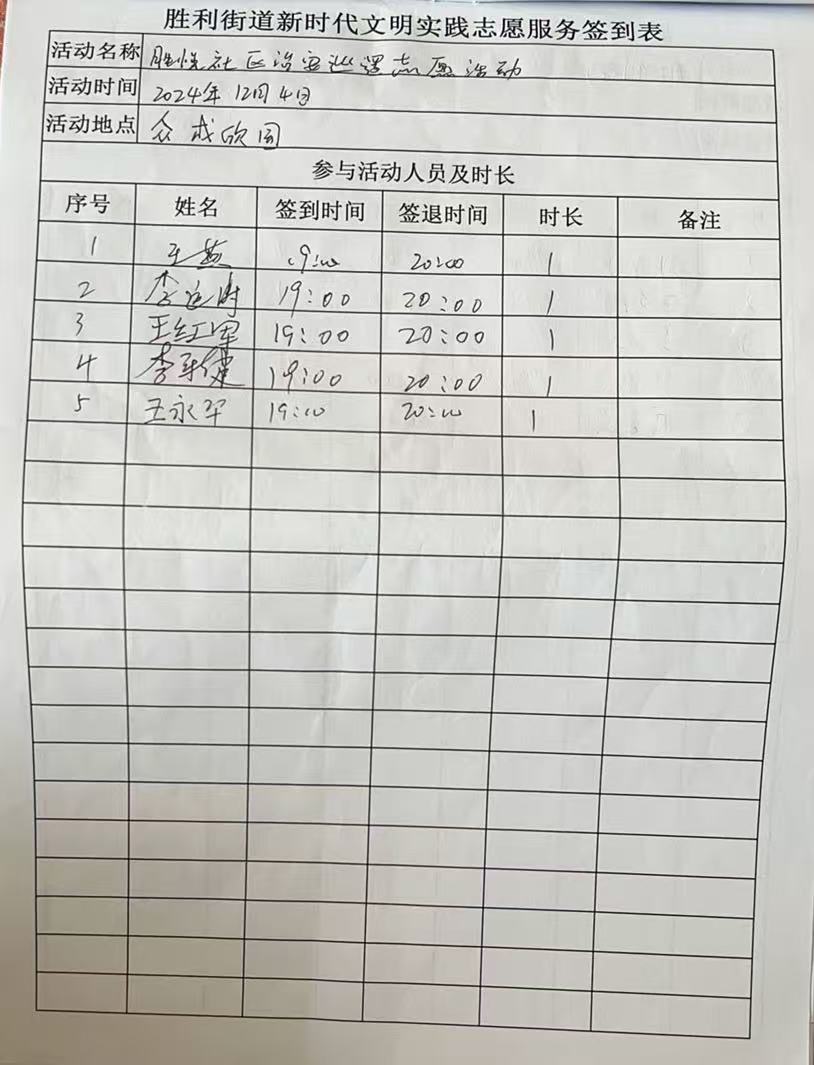 胜利街道新时代文明实践志愿服务签到表
活动名称 胜悦社区治安巡逻志愿活动
活动时间 2024年12月4日
活动地点 众成欣园
参与活动人员及时长
序号 姓名 签到时间 签退时间 时长 备注
1 王燕 19:00 20:00 1
2 李 19:00 20:00 1
3 王红军 19:00 20:00 1
4 李 健 19:00 20:00 1
5 王永军 19:00 20:00 1